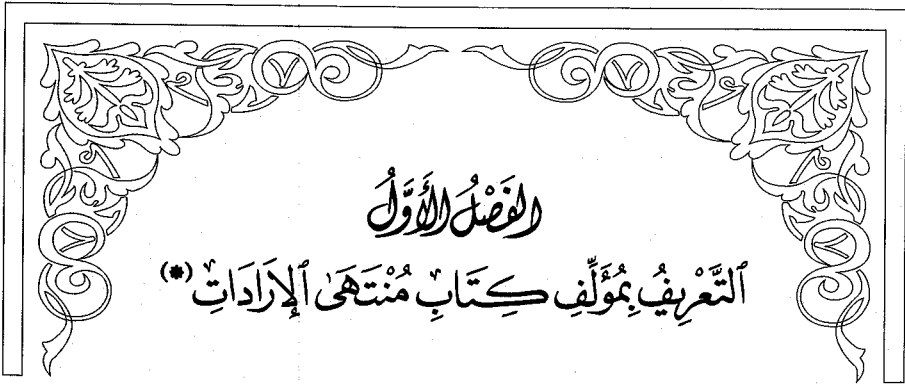 الفَصْلُ الأَوَّلُ
ٱلتَّعْرِيفُ بِمُؤَلِّفِ كِتَابِ مُنْتَهَى ٱلإِرَادَاتِ (*)